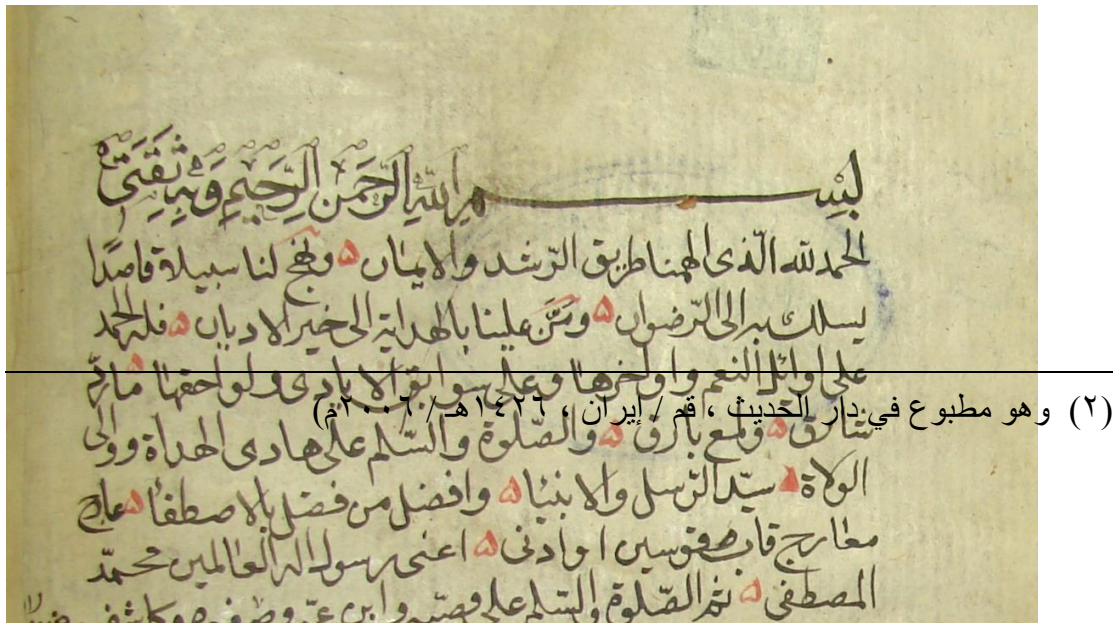 بسم الله الرحمن الرحيم وبه ثقتى
الحمد لله الّذى الهمنا طريق الرّشد والايمان ۵ ونهج لنا سبيلا قاصدًا
يسلك به الى الرّضوان ۵ ومَنّ علينا بالهداية الى خير الاديان ۵ فله الحمد
على اوائل النعم واواخرها وعلى سوابق الايادى ولواحقها ۵ ماذرّ
شارق ۵ ولمع بارق ۵ والصّلوة والسّلم على هادى الهداة ووالى
الولاة ۵ سيّد الرّسل والانبيا ۵ وافضل من فضل بالاصطفا ۵ عارج
معارج قاب قوسين او ادنى ۵ اعنى رسول اله العالمين محمّد
المصطفى ۵ ثم الصّلوة والسّلم على وصيّه وابن عمّه
(٢) وهو مطبوع في دار الحديث ، قم / إيران ، ١٤٢٦هـ / ٢٠٠٦م)